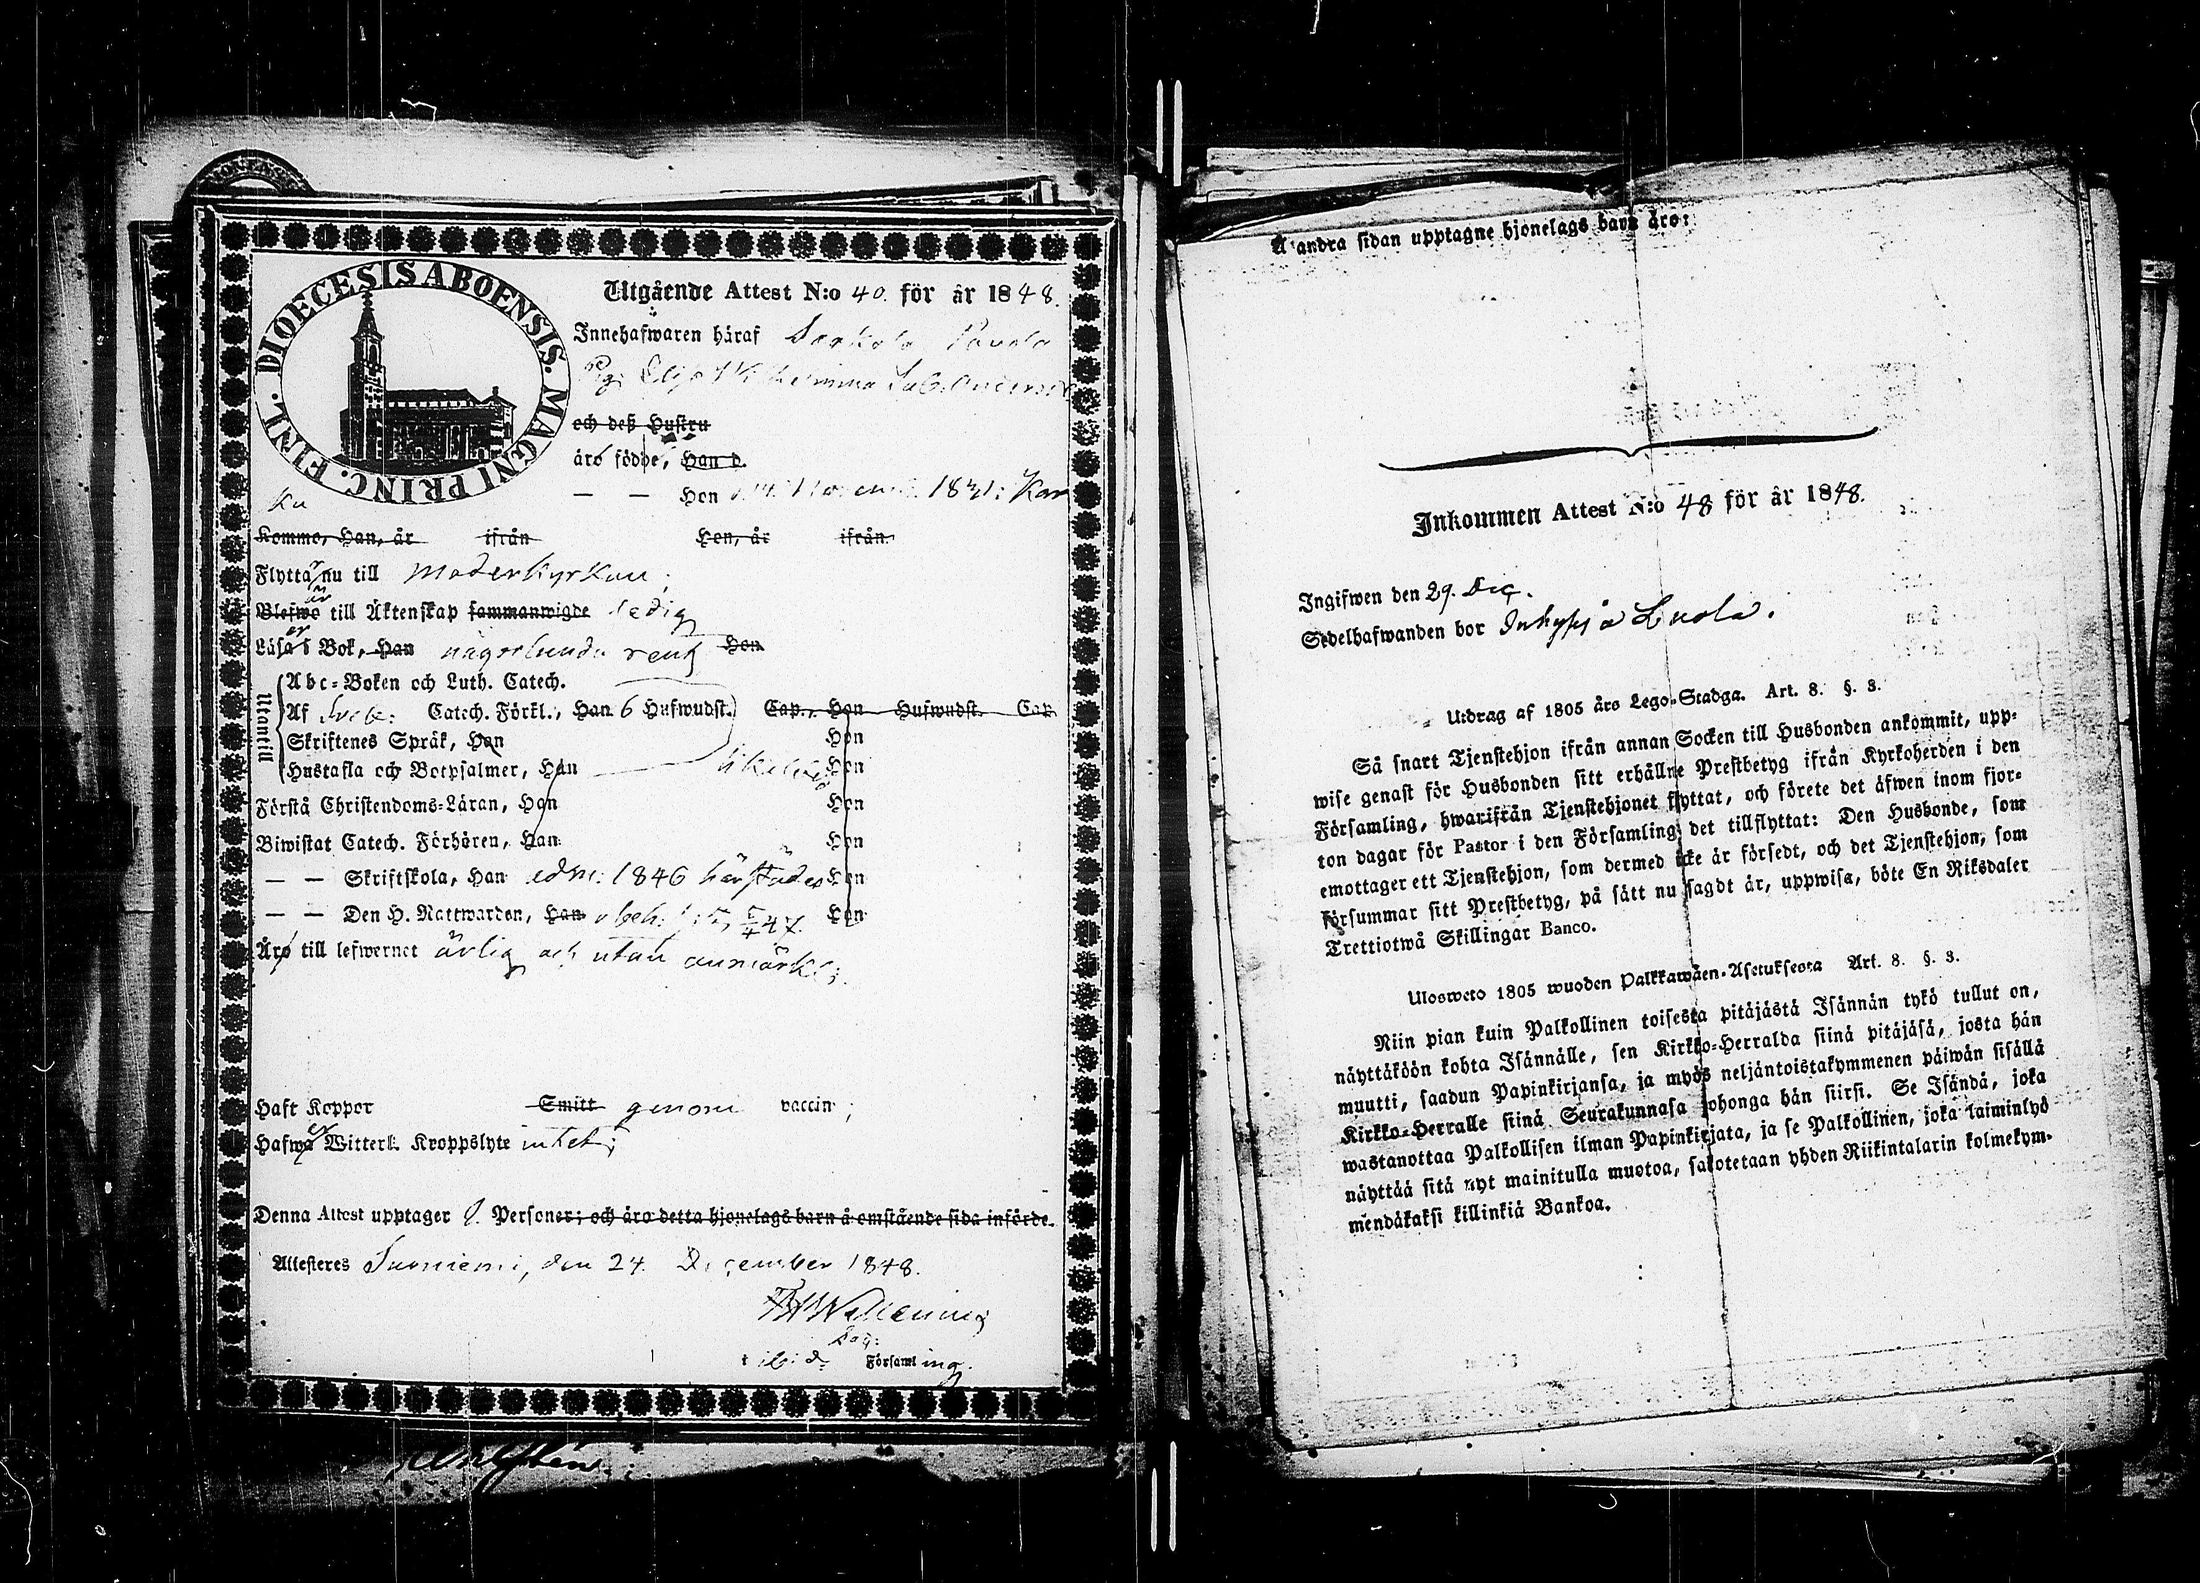 DIOECESIS ABOENSIS. MAGNI PRINC. FINL.
Utgående Attest N:o 40. för år 1848.
Innehafwaren häraf
Pig:
och deß Hustru
äro födde, Han d.
— — Hon 1831: Kar
ku
Komme, Han, år ifrån Hon, år ifrån
Flyttar nu till Moderkyrkan.
Blefwo är till Äktenskap sammanwigde ledig
Läsa er i Bok, Han någorlunda rent Hon
Utantill
Abc-Boken och Luth. Catech.
Af Svebe: Catech. Förkl., Han 6 Hufwudst. Cap., Hon Hufwudst. Cap.
Skriftenes Språk, Han Hon
Hustafla och Botpsalmer, Han Hon
Förstå Christendoms-Läran, Han Hon
Biwistat Catech. Förhören, Han Hon
— — Skriftskola, Han adm: 1846 härstädes Hon
— — Den H. Nattwarden, Han Hon
Äro till lefwernet ärlig och utan anmärkn:
Haft Koppor Smitt genom vaccin;
Hafwa er Witterl. Kroppslyte intet;
Denna Attest upptager 1. Personer; och äro detta hjonelags barn å omstående sida införde.
Attesteres Suoniemi, den 24. December 1848.
i ibid. Församling.
Å andra sidan upptagne hjonelags barn äro:
Inkommen Attest N:o 48 för år 1848.
Ingifwen den 29. Dec.
Sedelhafwanden bor Inhyses å Luola.
Utdrag af 1805 års Lego-Stadga. Art. 8. §. 3.
Så snart Tjenstehjon ifrån annan Socken till Husbonden ankommit, upp-
wise genast för Husbonden sitt erhållne Prestbetyg ifrån Kyrkoherden i den
Församling, hwarifrån Tjenstehjonet flyttat, och förete det äfwen inom fjor-
ton dagar för Pastor i den Församling det tillflyttat: Den Husbonde, som
emottager ett Tjenstehjon, som dermed icke är försedt, och det Tjenstehjon, som
försummar sitt Prestbetyg, på sätt nu sagdt är, uppwisa, böte En Riksdaler
Trettiotwå Skillingar Banco.
Ulosweto 1805 wuoden Palkkawäen-Asetuksesta Art. 8. §. 3.
Niin pian kuin Palkollinen toisesta pitäjästä Isännän tykö tullut on,
näyttäköön kohta Isännälle, sen Kirkko-Herralda siinä pitäjäsä, josta hän
muutti, saadun Papinkirjansa, ja myös neljäntoistakymmenen päiwän sisällä
Kirkko-Herralle siinä Seurakunnasa johonga hän siirsi. Se Isändä, joka
wastanottaa Palkollisen ilman Papinkirjata, ja se Palkollinen, joka laiminlyö
näyttää sitä nyt mainitulla muotoa, sakotetaan yhden Riikintalarin kolmekym-
mendäkaksi killinkiä Bankoa.